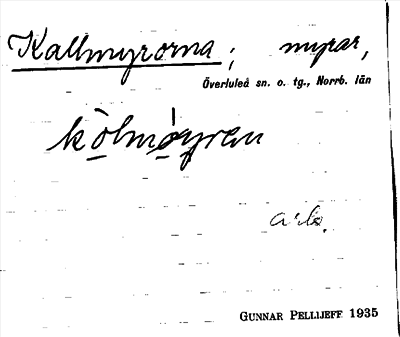 Kallmyrorna; myrar,
Överluleå sn. o. tg., Norrb. län
kòlmóyren
arb.
GUNNAR PELLIJEFF 1935